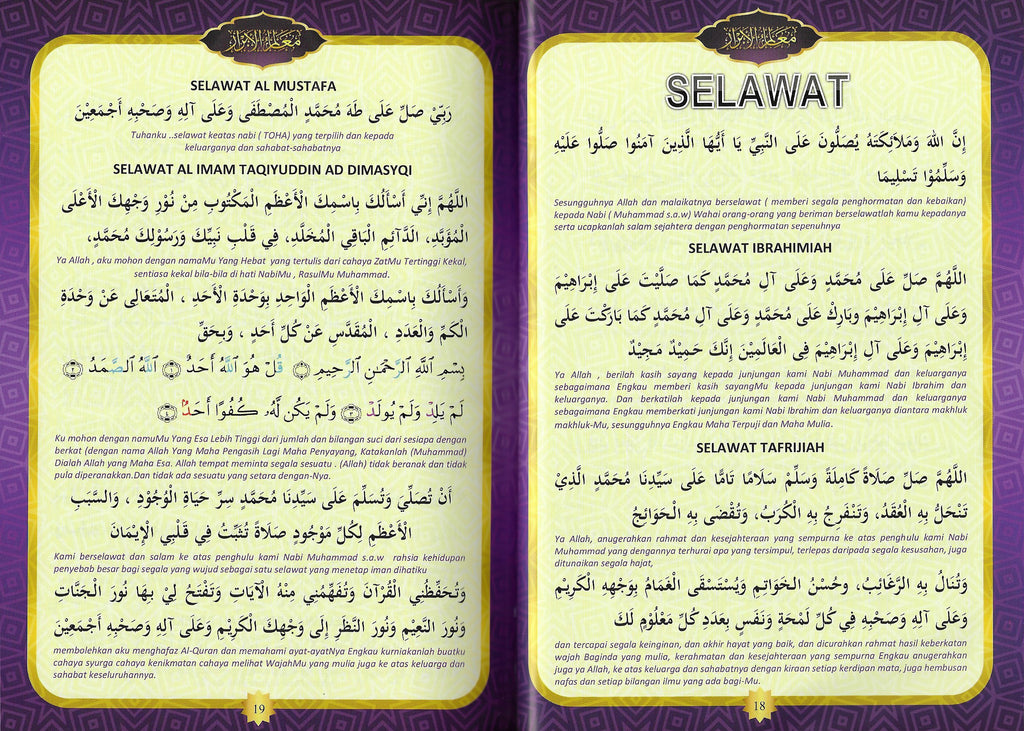 مَعَالِمُ الْأَبْرَارِ
SELAWAT
إِنَّ اللهَ وَمَلَائِكَتَهُ يُصَلُّونَ عَلَى النَّبِيِّ يَا أَيُّهَا الَّذِينَ آمَنُوا صَلُّوا عَلَيْهِ
وَسَلِّمُوْا تَسْلِيمَا
Sesungguhnya Allah dan malaikatnya berselawat ( memberi segala penghormatan dan kebaikan)
kepada Nabi ( Muhammad s.a.w) Wahai orang-orang yang beriman berselawatlah kamu kepadanya
serta ucapkanlah salam sejahtera dengan penghormatan sepenuhnya
SELAWAT IBRAHIMIAH
اللَّهُمَّ صَلِّ عَلَى مُحَمَّدٍ وَعَلَى آلِ مُحَمَّدٍ كَمَا صَلَّيْتَ عَلَى إِبْرَاهِيْمَ
وَعَلَى آلِ إِبْرَاهِيْمَ وَبَارِكْ عَلَى مُحَمَّدٍ وَعَلَى آلِ مُحَمَّدٍ كَمَا بَارَكْتَ عَلَى
إِبْرَاهِيْمَ وَعَلَى آلِ إِبْرَاهِيْمَ فِى الْعَالَمِيْنَ إِنَّكَ حَمِيْدٌ مَجِيْدٌ
Ya Allah , berilah kasih sayang kepada junjungan kami Nabi Muhammad dan keluarganya
sebagaimana Engkau memberi kasih sayangMu kepada junjungan kami Nabi Ibrahim dan
keluarganya. Dan berkatilah kepada junjungan kami Nabi Muhammad dan keluarganya
sebagaimana Engkau memberkati junjungan kami Nabi Ibrahim dan keluarganya diantara makhluk
makhluk-Mu, sesungguhnya Engkau Maha Terpuji dan Maha Mulia.
SELAWAT TAFRIJIAH
اللَّهُمَّ صَلِّ صَلَاةً كَامِلَةً وَسَلِّمْ سَلَامًا تَامًّا عَلَى سَيِّدِنَا مُحَمَّدٍ الَّذِيْ
تَنْحَلُّ بِهِ الْعُقَدُ، وَتَنْفَرِجُ بِهِ الْكُرَبُ، وَتُقْضَى بِهِ الْحَوَائِجُ
Ya Allah, anugerahkan rahmat dan kesejahteraan yang sempurna ke atas penghulu kami Nabi
Muhammad yang dengannya terhurai apa yang tersimpul, terlepas daripada segala kesusahan, juga
ditunaikan segala hajat,
وَتُنَالُ بِهِ الرَّغَائِبُ، وَحُسْنُ الْخَوَاتِمِ وَيُسْتَسْقَى الْغَمَامُ بِوَجْهِهِ الْكَرِيْمِ
وَعَلَى آلِهِ وَصَحْبِهِ فِي كُلِّ لَمْحَةٍ وَنَفَسٍ بِعَدَدِ كُلِّ مَعْلُوْمٍ لَكَ
dan tercapai segala keinginan, dan akhir hayat yang baik, dan dicurahkan rahmat hasil keberkatan
wajah Baginda yang mulia, kerahmatan dan kesejahteraan yang sempurna Engkau anugerahkan
juga ya Allah, ke atas keluarga dan sahabatnya dengan kiraan setiap kerdipan mata, juga hembusan
nafas dan setiap bilangan ilmu yang ada bagi-Mu.
18
مَعَالِمُ الْأَبْرَارِ
SELAWAT AL MUSTAFA
رَبِّيْ صَلِّ عَلَى طَهَ مُحَمَّدٍ الْمُصْطَفَى وَعَلَى آلِهِ وَصَحْبِهِ أَجْمَعِيْنَ
Tuhanku ..selawat keatas nabi ( TOHA) yang terpilih dan kepada
keluarganya dan sahabat-sahabatnya
SELAWAT AL IMAM TAQIYUDDIN AD DIMASYQI
اللَّهُمَّ إِنِّي أَسْأَلُكَ بِاسْمِكَ الْأَعْظَمِ الْمَكْتُوبِ مِنْ نُوْرِ وَجْهِكَ الْأَعْلَى
الْمُؤَبَّدِ، الدَّآئِمِ الْبَاقِي الْمُخَلَّدِ، فِي قَلْبِ نَبِيِّكَ وَرَسُوْلِكَ مُحَمَّدٍ،
Ya Allah , aku mohon dengan namaMu Yang Hebat yang tertulis dari cahaya ZatMu Tertinggi Kekal,
sentiasa kekal bila-bila di hati NabiMu , RasulMu Muhammad.
وَأَسْأَلُكَ بِاسْمِكَ الْأَعْظَمِ الْوَاحِدِ بِوَحْدَةِ الْأَحَدِ ، الْمُتَعَالِى عَنْ وَحْدَةِ
الْكَمِّ وَالْعَدَدِ ، الْمُقَدَّسِ عَنْ كُلِّ أَحَدٍ ، وَبِحَقِّ
بِسْمِ ٱللَّهِ ٱلرَّحْمَٰنِ ٱلرَّحِيمِ ۝ قُلْ هُوَ ٱللَّهُ أَحَدٌ ۝١ ٱللَّهُ ٱلصَّمَدُ ۝٢
لَمْ يَلِدْ وَلَمْ يُولَدْ ۝٣ وَلَمْ يَكُن لَّهُۥ كُفُوًا أَحَدٌۢ ۝٤
Ku mohon dengan namuMu Yang Esa Lebih Tinggi dari jumlah dan bilangan suci dari sesiapa dengan
berkat (dengan nama Allah Yang Maha Pengasih Lagi Maha Penyayang, Katakanlah (Muhammad)
Dialah Allah yang Maha Esa. Allah tempat meminta segala sesuatu . (Allah) tidak beranak dan tidak
pula diperanakkan.Dan tidak ada sesuatu yang setara dengan-Nya.
أَنْ تُصَلِّيَ وَتُسَلِّمَ عَلَى سَيِّدِنَا مُحَمَّدٍ سِرِّ حَيَاةِ الْوُجُوْدِ ، وَالسَّبَبِ
الْأَعْظَمِ لِكُلِّ مَوْجُودٍ صَلَاةً تُثَبِّتُ فِي قَلْبِيَ الْإِيْمَانَ
Kami berselawat dan salam ke atas penghulu kami Nabi Muhammad s.a.w rahsia kehidupan
penyebab besar bagi segala yang wujud sebagai satu selawat yang menetap iman dihatiku
وَتُحَفِّظُنِي الْقُرْآنَ وَتُفَهِّمُنِي مِنْهُ الْآيَاتِ وَتَفْتَحُ لِيْ بِهَا نُورَ الْجَنَّاتِ
وَنُورَ النَّعِيْمِ وَنُورَ النَّظَرِ إِلَى وَجْهِكَ الْكَرِيْمِ وَعَلَى آلِهِ وَصَحْبِهِ أَجْمَعِيْنَ
membolehkan aku menghafaz Al-Quran dan memahami ayat-ayatNya Engkau kurniakanlah buatku
cahaya syurga cahaya kenikmatan cahaya melihat WajahMu yang mulia juga ke atas keluarga dan
sahabat keseluruhannya.
19